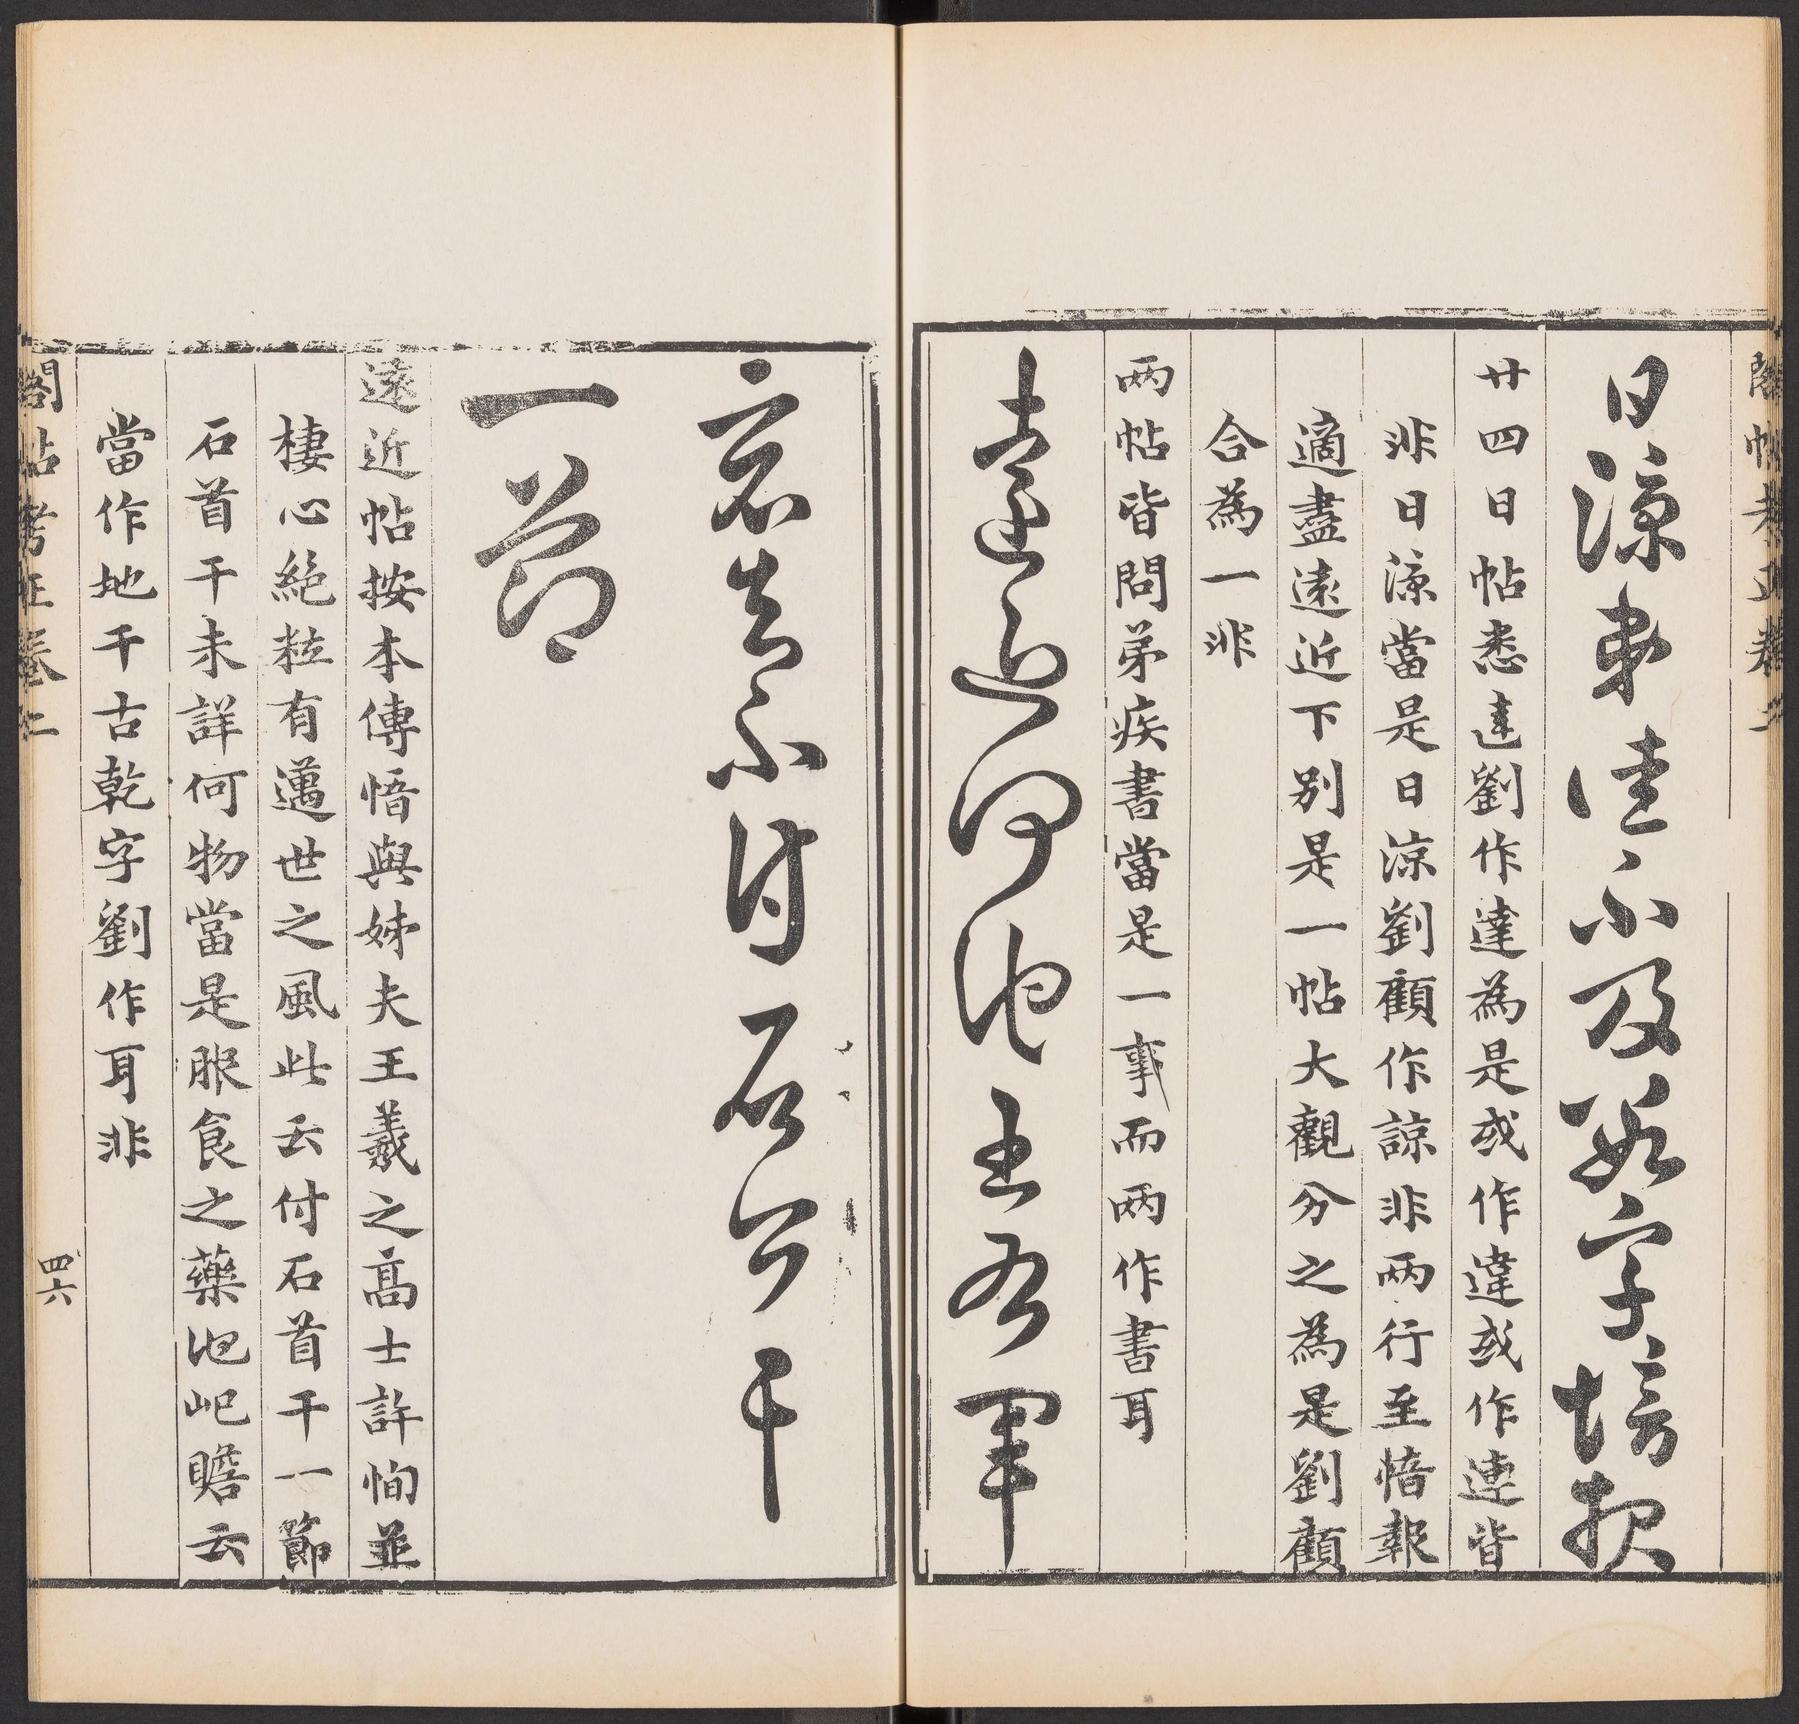 日涼弟佳不及數字愔報
廿四日帖悉達劉作達為是或作違或作連皆
非日涼當是日涼劉顧作諒非兩行至愔報
適盡遠近下別是一帖大觀分之為是劉顧
合為一非
兩帖皆問弟疾書當是一事而兩作書耳
遠近何地主吾軍
哀真不付石首干
一節
遠近帖按本傳愔與姊夫王羲之高士許恂並
棲心絕粒有邁世之風此云付石首干一節
石首干未詳何物當是服食之藥池屺瞻云
當作地干古乾字劉作耳非
閣帖考正卷二
四六